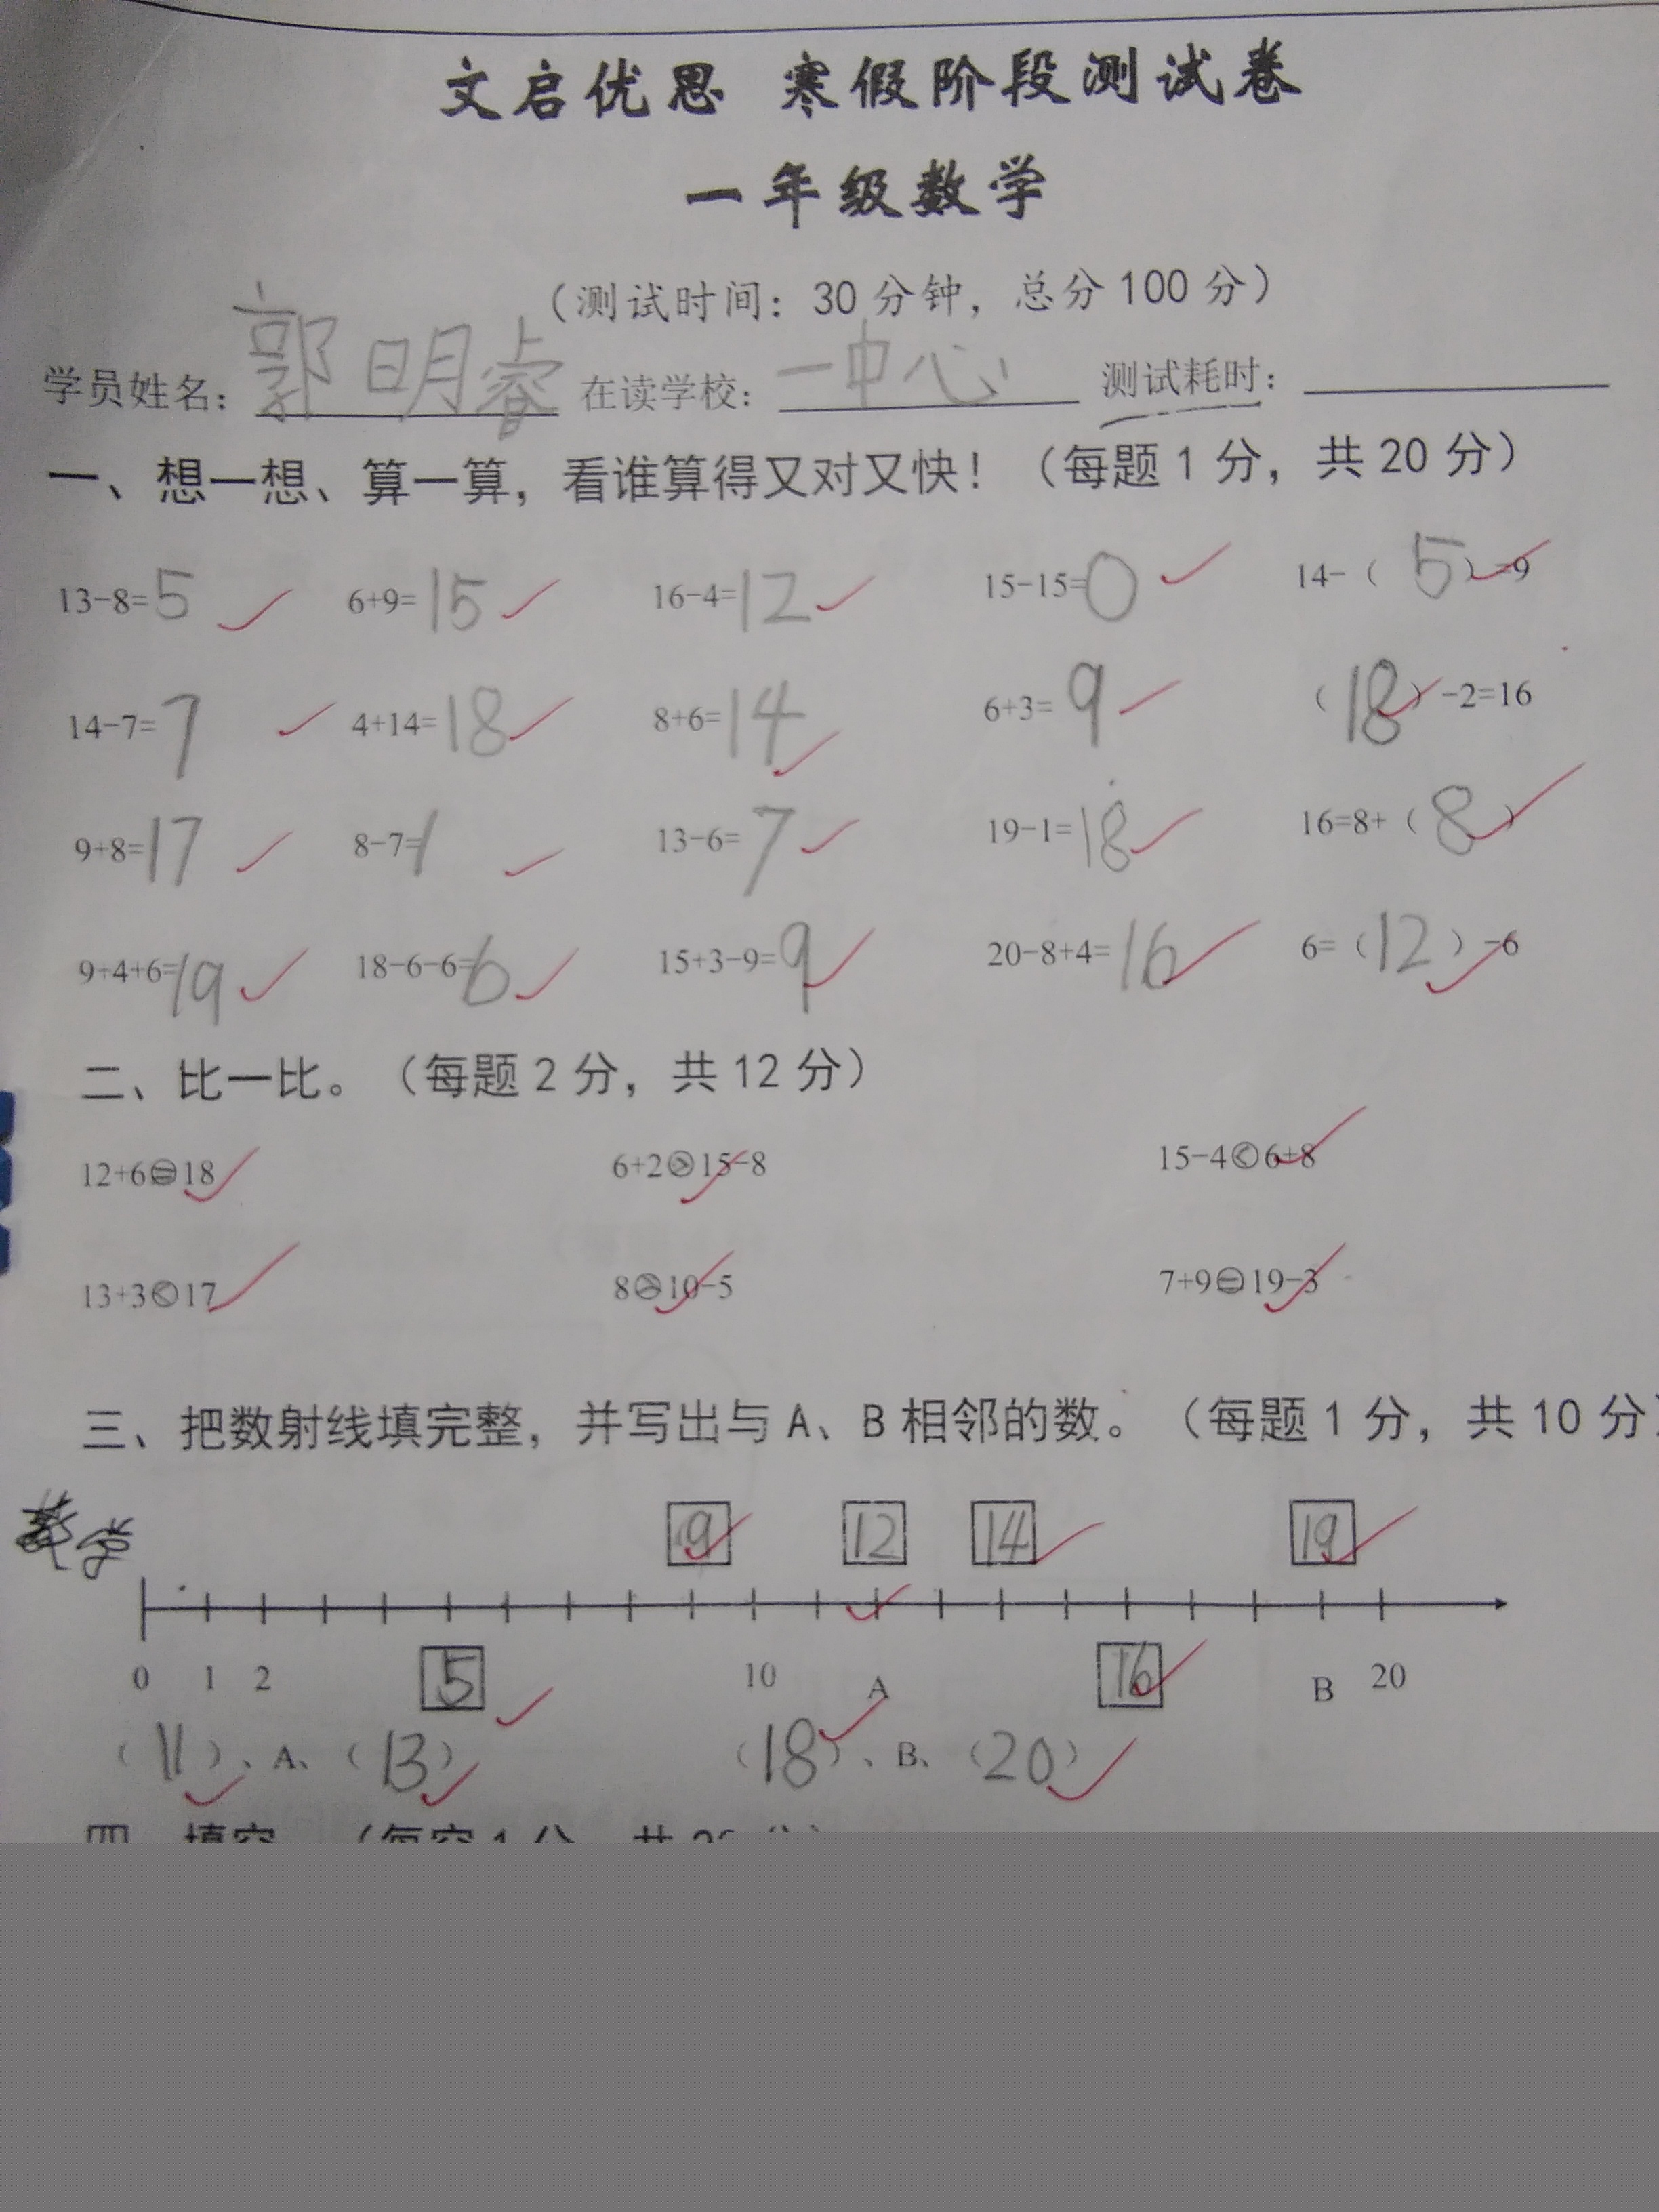 文启优思 寒假阶段测试卷
一年级数学
（测试时间：30分钟，总分100分）
学员姓名：郭明睿 在读学校：一中心 测试耗时：
一、想一想、算一算，看谁算得又对又快！（每题1分，共20分）
13-8=5 6+9=15 16-4=12 15-15=0 14-（5）=9
14-7=7 4+14=18 8+6=14 6+3=9 （18）-2=16
9+8=17 8-7=1 13-6=7 19-1=18 16=8+（8）
9+4+6=19 18-6-6=6 15+3-9=9 20-8+4=16 6=（12）-6
二、比一比。（每题2分，共12分）
12+6=18 6+2>15-8 15-4<6+8
13+3<17 8>10-5 7+9=19-3
三、把数射线填完整，并写出与A、B相邻的数。（每题1分，共10分）
9 12 14 19
数学
0 1 2 5 10 A 16 B 20
（11）、A、（13） （18）、B、（20）
四、填空。（每空1分，共